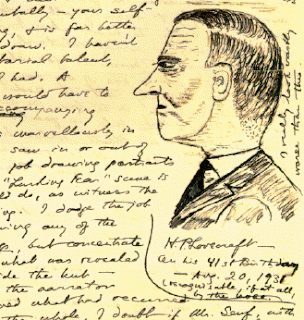 ntally – your self-
ng, & is far better
down. I haven't
torial talent,
I had. A
would have to
accompanying
is marvellously in
saw in or out of
job drawing portraits
"Lurking Fear" scene is
ld do, as witness the
ing. I dodge the job
wing any of the
, but concentrate
what was revealed
ide the hut –
the narrator
ved what had occurred
the whole, I doubt if Mr. Senf, with
I really look exactly
worse than this.
HPLovecraft –
On his 41st Birthday
– Aug. 20, 1931
(recognisable, if at all,
by the nose)